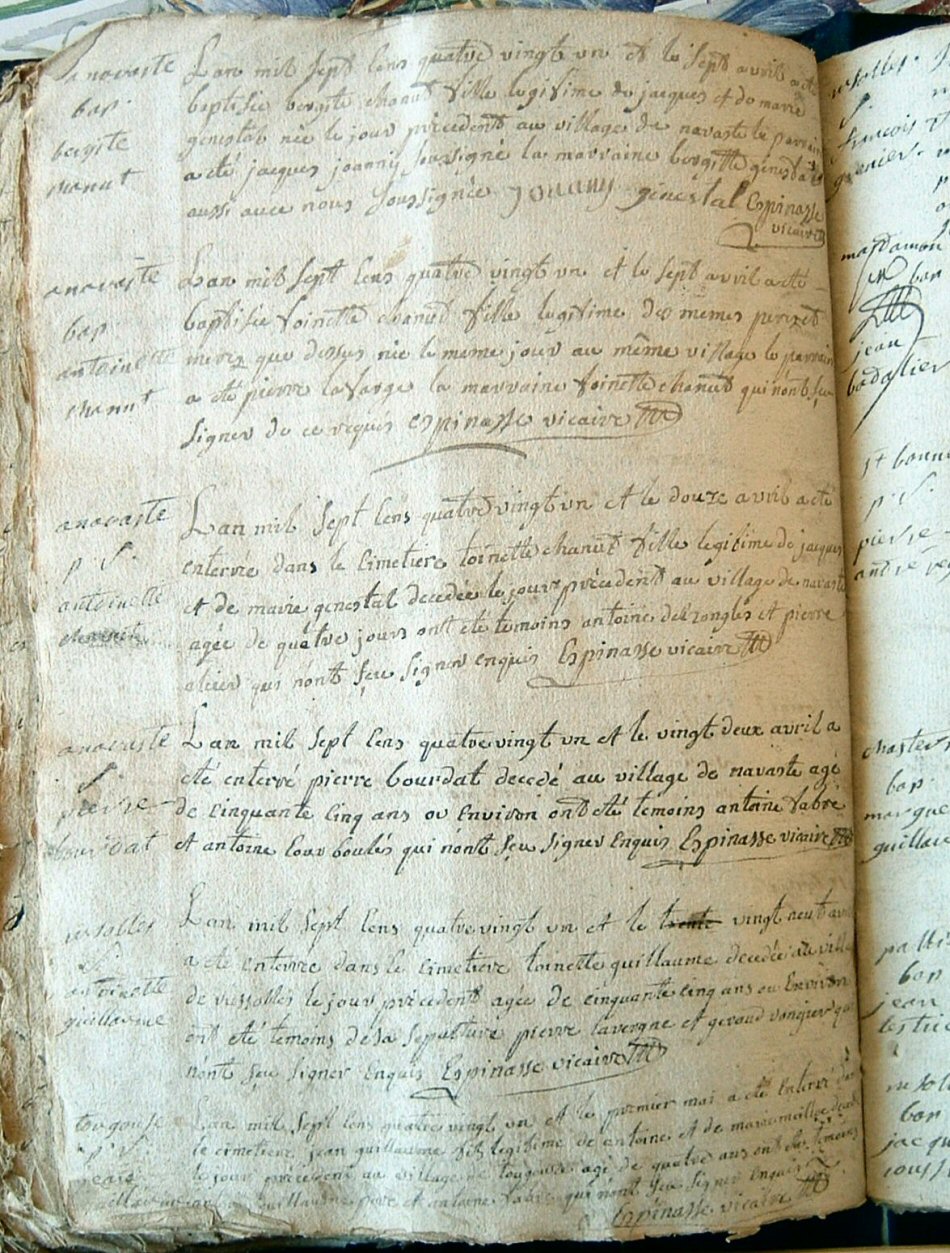 anavaste
bap.
bergite
chanut
Lan mil sept cens quatre vingt un et le sept avril a eté
baptisée bergite chanut fille legitime de jacques et de marie
genestal née le jour précédent au village de navaste le parrain
a eté jacques joanny soussigné la marraine bergitte génestal
aussi avec nous soussignée joanny génestal Espinasse
vicaire
anavaste
bap.
antoinette
chanut
Lan mil sept cens quatre vingt un et le sept avril a eté
baptisée toinette chanut fille legitime des memes perect
merez que dessus née le meme jour au même village le parrain
a eté pierre lafarge la marraine toinette chanut qui nont seu
signer de ce requis Espinasse vicaire
anavaste
p. S.
antoinette
chanut
Lan mil sept cens quatre vingt un et le douze avril a eté
enterrée dans le cimetiere toinette chanut fille legitime de jacques
et de marie genestal decedée le jour précédent au village de navaste
agée de quatre jours ont eté temoins antoine delzongles et pierre
qui nont seu signer enquis Espinasse vicaire
anavaste
S.
pierre
bourdat
Lan mil sept cens quatre vingt un et le vingt deux avril a
eté enterré pierre bourdat decedé au village de navaste agé
de cinquante cinq ans ou environ ont eté temoins antoine fabre
et antoine courboulés qui nont seu signer enquis Espinasse vicaire
vessalles
S.
antoinette
guillaume
Lan mil sept cens quatre vingt un et le trente vingt neuf avril
a eté enterrée dans le cimetiere toinette guillaume decedée au village
de vessalles le jour précédent agée de cinquante cinq ans ou environ
ont eté temoins de sa sepulture pierre lavergne et geraud vongier qui
nont seu signer enquis Espinasse vicaire
tougouse
p. S.
jean
Lan mil sept cens quatre vingt un et le premier mai a eté enterré dans
le cimetiere jean guillaume fils legitime de antoine et de marie
le jour précédent au village de tougouse agé de quatre ans ont eté temoins
guillaume pere et antoine fabre qui nont seu signer enquis
Espinasse vicaire
francois
jean
st bonn
p. S.
pierre
bap.
marque
guillau
bap
jean
bap
jacqu